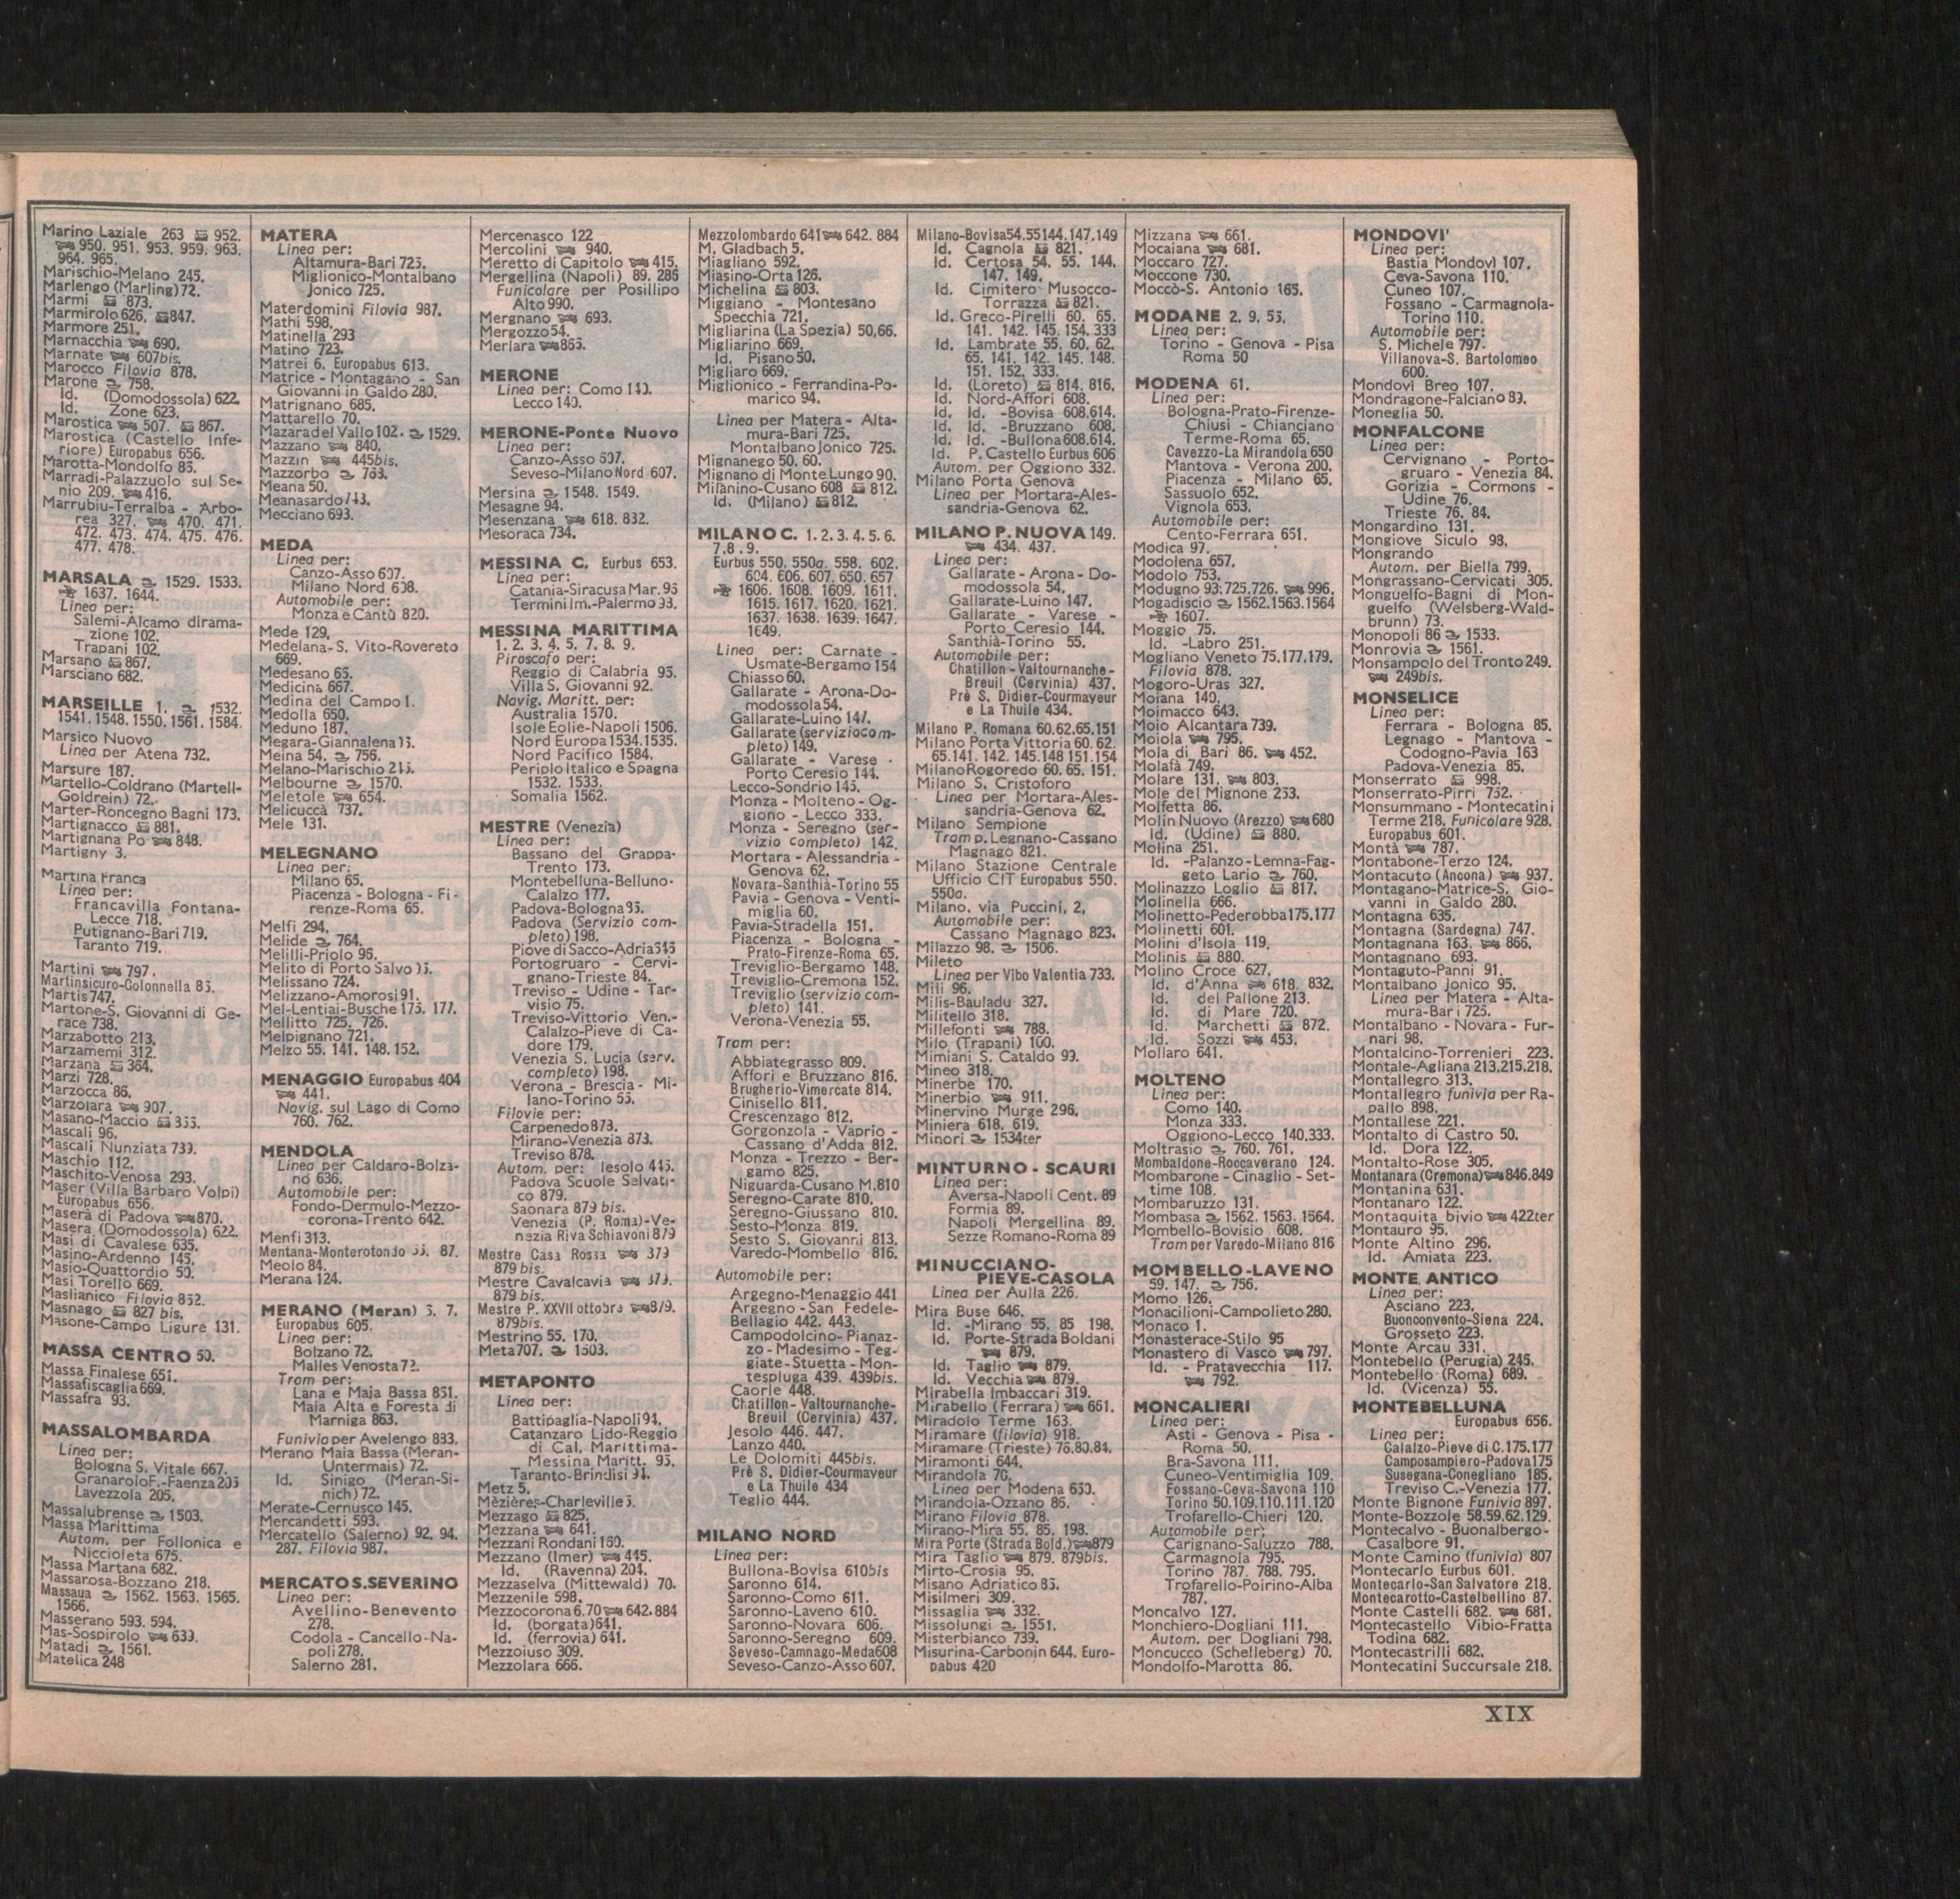 Marino Laziale 263 952.
950. 951. 953. 959. 963.
964. 965.
Marischio-Melano 245.
Marlengo (Marling) 72.
Marmi 873.
Marmirolo 626. 847.
Marmore 251.
Marnacchia 690.
Marnate 607bis.
Marocco Filovia 878.
Marone 758.
Id. (Domodossola) 622.
Id. Zone 623.
Marostica 507. 867.
Marostica (Castello Infe-
riore) Europabus 656.
Marotta-Mondolfo 86.
Marradi-Palazzuolo sul Se-
nio 209. 416.
Marrubiu-Terralba - Arbo-
rea 327. 470. 471.
472. 473. 474. 475. 476.
477. 478.
MARSALA 1529. 1533.
1637. 1644.
Linea per:
Salemi-Alcamo dirama-
zione 102.
Trapani 102.
Marsano 867.
Marsciano 682.
MARSEILLE 1. 1532.
1541. 1548. 1550. 1561. 1584.
Marsico Nuovo
Linea per Atena 732.
Marsure 187.
Martello-Coldrano (Martell-
Goldrein) 72.
Marter-Roncegno Bagni 173.
Martignacco 881.
Martignana Po 848.
Martigny 3.
Martina Franca
Linea per:
Francavilla Fontana-
Lecce 718.
Putignano-Bari 719.
Taranto 719.
Martini 797.
Martinsicuro-Colonnella 86.
Martis 747.
Martone-S. Giovanni di Ge-
race 738.
Marzabotto 213.
Marzamemi 312.
Marzana 364.
Marzi 728.
Marzocca 86.
Marzolara 907.
Masano-Maccio
Mascali 96.
Mascali Nunziata 739.
Maschio 112.
Maschito-Venosa 293.
Maser (Villa Barbaro Volpi)
Europabus 656.
Maserà di Padova 870.
Masera (Domodossola) 622.
Masi di Cavalese 635.
Masino-Ardenno 145.
Masio-Quattordio 50.
Masi Torello 669.
Maslianico Filovia 852.
Masnago 827 bis.
Masone-Campo Ligure 131.
MASSA CENTRO 50.
Massa Finalese 651.
Massafiscaglia 669.
Massafra 93.
MASSALOMBARDA
Linea per:
Bologna S. Vitale 667.
Granarolo F.-Faenza 205
Lavezzola 205.
Massalubrense 1503.
Massa Marittima
Autom. per Follonica e
Niccioleta 675.
Massa Martana 682.
Massarosa-Bozzano 218.
Massaua 1562. 1563. 1565.
1566.
Masserano 593. 594.
Mas-Sospirolo 633.
Matadi 1561.
Matelica 248
MATERA
Linea per:
Altamura-Bari 725.
Miglionico-Montalbano
Jonico 725.
Materdomini Filovia 987.
Mathi 598.
Matinella 293
Matino 723.
Matrei 6. Europabus 613.
Matrice - Montagano - San
Giovanni in Galdo 280.
Matrignano 685.
Mattarello 70.
Mazara del Vallo 102. 1529.
Mazzano 840.
Mazzin 445bis.
Mazzorbo 763.
Meana 50.
Meanasardo 743.
Mecciano 693.
MEDA
Linea per:
Canzo-Asso 607.
Milano Nord 608.
Automobile per:
Monza e Cantù 820.
Mede 129.
Medelana-S. Vito-Rovereto
669.
Medesano 65.
Medicina 667.
Medina del Campo 1.
Medolla 650.
Meduno 187.
Megara-Giannalena
Meina 54. 756.
Melano-Marischio
Melbourne 1570.
Meletole 654.
Melicuccà 737.
Mele 131.
MELEGNANO
Linea per:
Milano 65.
Piacenza - Bologna - Fi-
renze-Roma 65.
Melfi 294.
Melide 764.
Melilli-Priolo 96.
Melito di Porto Salvo
Melissano 724.
Melizzano-Amorosi 91.
Mel-Lentiai-Busche 175. 177.
Mellitto 725. 726.
Melpignano 721.
Melzo 55. 141. 148. 152.
MENAGGIO Europabus 404
441.
Navig. sul Lago di Como
760. 762.
MENDOLA
Linea per Caldaro-Bolza-
no 636.
Automobile per:
Fondo-Dermulo-Mezzo-
corona-Trento 642.
Menfi 313.
Mentana-Monterotondo 87.
Meolo 84.
Merana 124.
MERANO (Meran) 5. 7.
Europabus 605.
Linea per:
Bolzano 72.
Malles Venosta 72.
Tram per:
Lana e Maja Bassa 861.
Maia Alta e Foresta di
Marniga 863.
Funivia per Avelengo 883.
Merano Maia Bassa (Meran-
Untermais) 72.
Id. Sinigo (Meran-Si-
nich) 72.
Merate-Cernusco 145.
Mercandetti 593.
Mercatello (Salerno) 92. 94.
287. Filovia 987.
MERCATO S. SEVERINO
Linea per:
Avellino-Benevento
278.
Codola - Cancello-Na-
poli 278.
Salerno 281.
Mercenasco 122
Mercolini 940.
Meretto di Capitolo 415.
Mergellina (Napoli) 89. 286
Funicolare per Posillipo
Alto 990.
Mergnano 693.
Mergozzo 54.
Merlara 865.
MERONE
Linea per: Como 140.
Lecco 140.
MERONE-Ponte Nuovo
Linea per:
Canzo-Asso 607.
Seveso-Milano Nord 607.
Mersina 1548. 1549.
Mesagne 94.
Mesenzana 618. 832.
Mesoraca 734.
MESSINA C. Eurbus 653.
Linea per:
Catania-Siracusa Mar. 96
Termini Im.-Palermo 93.
MESSINA MARITTIMA
1. 2. 3. 4. 5. 7. 8. 9.
Piroscafo per:
Reggio di Calabria 95.
Villa S. Giovanni 92.
Navig. Maritt. per:
Australia 1570.
Isole Eolie-Napoli 1506.
Nord Europa 1534. 1535.
Nord Pacifico 1584.
Periplo Italico e Spagna
1532. 1533.
Somalia 1562.
MESTRE (Venezia)
Linea per:
Bassano del Grappa-
Trento 173.
Montebelluna-Belluno-
Calalzo 177.
Padova-Bologna 85.
Padova (Servizio com-
pleto) 198.
Piove di Sacco-Adria 646
Portogruaro - Cervi-
gnano-Trieste 84.
Treviso - Udine - Tar-
visio 75.
Treviso-Vittorio Ven.-
Calalzo-Pieve di Ca-
dore 179.
Venezia S. Lucia (serv.
completo) 198.
Verona - Brescia - Mi-
lano-Torino 55.
Filovie per:
Carpenedo 873.
Mirano-Venezia 873.
Treviso 878.
Autom. per: Iesolo 446.
Padova Scuole Selvati-
co 879.
Saonara 879 bis.
Venezia (P. Roma)-Ve-
nezia Riva Schiavoni 879
Mestre Casa Rossa 879
879 bis.
Mestre Cavalcavia 879.
879 bis.
Mestre P. XXVII ottobre 879.
879bis.
Mestrino 55. 170.
Meta 707. 1503.
METAPONTO
Linea per:
Battipaglia-Napoli 94.
Catanzaro Lido-Reggio
di Cal. Marittima-
Messina Maritt. 95.
Taranto-Brindisi 94.
Metz 5.
Mèzières-Charleville 5.
Mezzago 825.
Mezzana 641.
Mezzani Rondani 160.
Mezzano (Imer) 445.
Id. (Ravenna) 204.
Mezzaselva (Mittewald) 70.
Mezzenile 598.
Mezzocorona 6. 70 642. 884
Id. (borgata) 641.
Id. (ferrovia) 641.
Mezzoiuso 309.
Mezzolara 666.
Mezzolombardo 641 642. 884
M. Gladbach 5.
Miagliano 592.
Miasino-Orta 126.
Michelina 803.
Miggiano - Montesano
Specchia 721.
Migliarina (La Spezia) 50. 66.
Migliarino 669.
Id. Pisano 50.
Migliaro 669.
Miglionico - Ferrandina-Po-
marico 94.
Linea per Matera - Alta-
mura-Bari 725.
Montalbano Jonico 725.
Mignanego 50. 60.
Mignano di Monte Lungo 90.
Milanino-Cusano 608 812.
Id. (Milano) 812.
MILANO C. 1. 2. 3. 4. 5. 6.
7. 8. 9.
Eurbus 550. 550a. 558. 602.
604. 606. 607. 650. 657
1606. 1608. 1609. 1611.
1615. 1617. 1620. 1621.
1637. 1638. 1639. 1647.
1649.
Linea per: Carnate -
Usmate-Bergamo 154
Chiasso 60.
Gallarate - Arona-Do-
modossola 54.
Gallarate-Luino 147.
Gallarate (servizio com-
pleto) 149.
Gallarate - Varese -
Porto Ceresio 144.
Lecco-Sondrio 145.
Monza - Molteno - Og-
giono - Lecco 333.
Monza - Seregno (ser-
vizio completo) 142.
Mortara - Alessandria -
Genova 62.
Novara-Santhià-Torino 55
Pavia - Genova - Venti-
miglia 60.
Pavia-Stradella 151.
Piacenza - Bologna -
Prato-Firenze-Roma 65.
Treviglio-Bergamo 148.
Treviglio-Cremona 152.
Treviglio (servizio com-
pleto) 141.
Verona-Venezia 55.
Tram per:
Abbiategrasso 809.
Affori e Bruzzano 816.
Brugherio-Vimercate 814.
Cinisello 811.
Crescenzago 812.
Gorgonzola - Vaprio -
Cassano d'Adda 812.
Monza - Trezzo - Ber-
gamo 825.
Niguarda-Cusano M. 810
Seregno-Carate 810.
Seregno-Giussano 810.
Sesto-Monza 819.
Sesto S. Giovanni 813.
Varedo-Mombello 816.
Automobile per:
Argegno-Menaggio 441
Argegno - San Fedele-
Bellagio 442. 443.
Campodolcino- Pianaz-
zo - Madesimo - Teg-
giate-Stuetta - Mon-
tespluga 439. 439bis.
Caorle 448.
Chatillon - Valtournanche-
Breuil (Cervinia) 437.
Jesolo 446. 447.
Lanzo 440.
Le Dolomiti 445bis.
Prè S. Didier-Courmayeur
e La Thuile 434
Teglio 444.
MILANO NORD
Linea per:
Bullona-Bovisa 610bis
Saronno 614.
Saronno-Como 611.
Saronno-Laveno 610.
Saronno-Novara 606.
Saronno-Seregno 609.
Seveso-Camnago-Meda 608
Seveso-Canzo-Asso 607.
Milano-Bovisa 54. 55 144. 147. 149
Id. Cagnola 821.
Id. Certosa 54. 55. 144.
147. 149.
Id. Cimitero Musocco-
Torrazza 821.
Id. Greco-Pirelli 60. 65.
141. 142. 145. 154. 333
Id. Lambrate 55. 60. 62.
65. 141. 142. 145. 148.
151. 152. 333.
Id. (Loreto) 814. 816.
Id. Nord-Affori 608.
Id. Id. -Bovisa 608. 614.
Id. Id. -Bruzzano 608.
Id. Id. -Bullona 608. 614.
Id. P. Castello Eurbus 606
Autom. per Oggiono 332.
Milano Porta Genova
Linea per Mortara-Ales-
sandria-Genova 62.
MILANO P. NUOVA 149.
434. 437.
Linea per:
Gallarate - Arona - Do-
modossola 54.
Gallarate-Luino 147.
Gallarate - Varese -
Porto Ceresio 144.
Santhià-Torino 55.
Automobile per:
Chatillon - Valtournanche-
Breuil (Cervinia) 437.
Prè S. Didier-Courmayeur
e La Thuile 434.
Milano P. Romana 60. 62. 65. 151
Milano Porta Vittoria 60. 62.
65. 141. 142. 145. 148 151. 154
Milano Rogoredo 60. 65. 151.
Milano S. Cristoforo
Linea per Mortara-Ales-
sandria-Genova 62.
Milano Sempione
Tram p. Legnano-Cassano
Magnago 821.
Milano Stazione Centrale
Ufficio CIT Europabus 550.
550a.
Milano, via Puccini, 2,
Automobile per:
Cassano Magnago 823.
Milazzo 98. 1506.
Mileto
Linea per Vibo Valentia 733.
Mili 96.
Milis-Bauladu 327.
Militello 318.
Millefonti 788.
Milo (Trapani) 100.
Mimiani S. Cataldo 99.
Mineo 318.
Minerbe 170.
Minerbio 911.
Minervino Murge 296.
Miniera 618. 619.
Minori 1534ter
MINTURNO - SCAURI
Linea per:
Aversa-Napoli Cent. 89
Formia 89.
Napoli Mergellina 89.
Sezze Romano-Roma 89
MINUCCIANO-
PIEVE-CASOLA
Linea per Aulla 226.
Mira Buse 646.
Id. -Mirano 55. 85 198.
Id. Porte-Strada Boldani
879.
Id. Taglio 879.
Id. Vecchia 879.
Mirabella Imbaccari 319.
Mirabello (Ferrara) 661.
Miradolo Terme 163.
Miramare (filovia) 918.
Miramare (Trieste) 76. 80. 84.
Miramonti 644.
Mirandola 70.
Linea per Modena 650.
Mirandola-Ozzano 86.
Mirano Filovia 878.
Mirano-Mira 55. 85. 198.
Mira Porte (Strada Bold.) 879
Mira Taglio 879. 879bis.
Mirto-Crosia 95.
Misano Adriatico 86.
Misilmeri 309.
Missaglia 332.
Missolungi 1551.
Misterbianco 739.
Misurina-Carbonin 644. Euro-
pabus 420
Mizzana 661.
Mocaiana 681.
Moccaro 727.
Moccone 730.
Moccò-S. Antonio 165.
MODANE 2. 9. 55.
Linea per:
Torino - Genova - Pisa
Roma 50
MODENA 61.
Linea per:
Bologna-Prato-Firenze-
Chiusi - Chianciano
Terme-Roma 65.
Cavezzo-La Mirandola 650
Mantova - Verona 200.
Piacenza - Milano 65.
Sassuolo 652.
Vignola 653.
Automobile per:
Cento-Ferrara 651.
Modica 97.
Modolena 657.
Modolo 753.
Modugno 93. 725. 726. 996.
Mogadiscio 1562. 1563. 1564
1607.
Moggio 75.
Id. -Labro 251.
Mogliano Veneto 75. 177. 179.
Filovia 878.
Mogoro-Uras 327.
Moiana 140.
Moimacco 643.
Moio Alcantara 739.
Moiola 795.
Mola di Bari 86. 452.
Molafà 749.
Molare 131. 803.
Mole del Mignone 253.
Molfetta 86.
Molin Nuovo (Arezzo) 680
Id. (Udine) 880.
Molina 251.
Id. -Palanzo-Lemna-Fag-
geto Lario 760.
Molinazzo Loglio 817.
Molinella 666.
Molinetto-Pederobba 175. 177
Molinetti 601.
Molini d'Isola 119.
Molinis 880.
Molino Croce 627.
Id. d'Anna 618. 832.
Id. del Pallone 213.
Id. di Mare 720.
Id. Marchetti 872.
Id. Sozzi 453.
Mollaro 641.
MOLTENO
Linea per:
Como 140.
Monza 333.
Oggiono-Lecco 140. 333.
Moltrasio 760. 761.
Mombaldone-Roccaverano 124.
Mombarone - Cinaglio - Set-
time 108.
Mombaruzzo 131.
Mombasa 1562. 1563. 1564.
Mombello-Bovisio 608.
Tram per Varedo-Milano 816
MOMBELLO-LAVENO
59. 147. 756.
Momo 126.
Monacilioni-Campolieto 280.
Monaco 1.
Monasterace-Stilo 95
Monastero di Vasco 797.
Id. - Pratavecchia 117.
792.
MONCALIERI
Linea per:
Asti - Genova - Pisa -
Roma 50.
Bra-Savona 111.
Cuneo-Ventimiglia 109.
Fossano-Ceva-Savona 110
Torino 50. 109. 110. 111. 120
Trofarello-Chieri 120.
Automobile per:
Carignano-Saluzzo 788.
Carmagnola 795.
Torino 787. 788. 795.
Trofarello-Poirino-Alba
787.
Moncalvo 127.
Monchiero-Dogliani 111.
Autom. per Dogliani 798.
Moncucco (Schelleberg) 70.
Mondolfo-Marotta 86.
MONDOVI'
Linea per:
Bastia Mondovì 107.
Ceva-Savona 110.
Cuneo 107.
Fossano - Carmagnola-
Torino 110.
Automobile per:
S. Michele 797.
Villanova-S. Bartolomeo
600.
Mondovì Breo 107.
Mondragone-Falciano 89.
Moneglia 50.
MONFALCONE
Linea per:
Cervignano - Porto-
gruaro - Venezia 84.
Gorizia - Cormons -
Udine 76.
Trieste 76. 84.
Mongardino 131.
Mongiove Siculo 98.
Mongrando
Autom. per Biella 799.
Mongrassano-Cervicati 305.
Monguelfo-Bagni di Mon-
guelfo (Welsberg-Wald-
brunn) 73.
Monopoli 86 1533.
Monrovia 1561.
Monsampolo del Tronto 249.
249bis.
MONSELICE
Linea per:
Ferrara - Bologna 85.
Legnago - Mantova -
Codogno-Pavia 163
Padova-Venezia 85.
Monserrato 998.
Monserrato-Pirri 752.
Monsummano - Montecatini
Terme 218. Funicolare 928.
Europabus 601.
Montà 787.
Montabone-Terzo 124.
Montacuto (Ancona) 937.
Montagano-Matrice-S. Gio-
vanni in Galdo 280.
Montagna 635.
Montagna (Sardegna) 747.
Montagnana 163. 866.
Montagnano 693.
Montaguto-Panni 91.
Montalbano Jonico 95.
Linea per Matera - Alta-
mura-Bari 725.
Montalbano - Novara - Fur-
nari 98.
Montalcino-Torrenieri 223.
Montale-Agliana 213. 215. 218.
Montallegro 313.
Montallegro funivia per Ra-
pallo 898.
Montallese 221.
Montalto di Castro 50.
Id. Dora 122.
Montalto-Rose 305.
Montanara (Cremona) 846. 849
Montanina 631.
Montanaro 122.
Montaquita bivio 422ter
Montauro 95.
Monte Altino 296.
Id. Amiata 223.
MONTE ANTICO
Linea per:
Asciano 223.
Buonconvento-Siena 224.
Grosseto 223.
Monte Arcau 331.
Montebello (Perugia) 246.
Montebello (Roma) 689.
Id. (Vicenza) 55.
MONTEBELLUNA
Europabus 656.
Linea per:
Calalzo-Pieve di C. 175. 177
Camposampiero-Padova 175
Susegana-Conegliano 185.
Treviso C.-Venezia 177.
Monte Bignone Funivia 897.
Monte-Bozzole 58. 59. 62. 129.
Montecalvo - Buonalbergo-
Casalbore 91.
Monte Camino (funivia) 807
Montecarlo Eurbus 601.
Montecarlo-San Salvatore 218.
Montecarotto-Castelbellino 87.
Monte Castelli 682. 681.
Montecastello Vibio-Fratta
Todina 682.
Montecastrilli 682.
Montecatini Succursale 218.
XIX